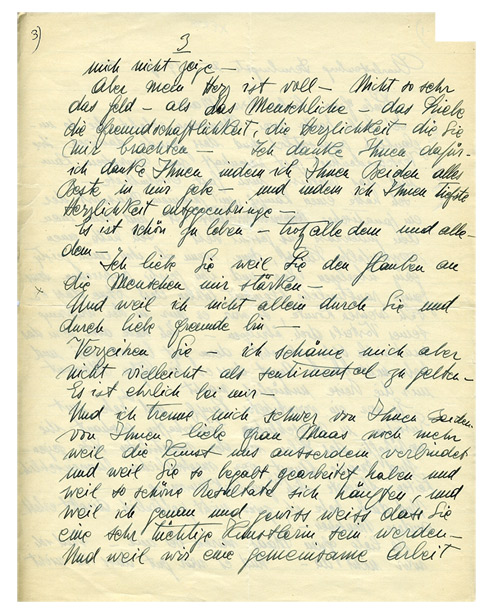 3)
3
mich nicht zeige —
Aber mein Herz ist voll — Nicht so sehr
das Geld — als das Menschliche — das Liebe
die Freundschaftlichkeit, die Herzlichkeit die Sie
mir brachten — Ich danke Ihnen dafür —
ich danke Ihnen indem ich Ihnen beiden alles
Beste in mir gebe — und indem ich Ihnen tiefste
Herzlichkeit entgegenbringe —
Es ist schön zu leben — trotz alle dem und alle-
dem —
Ich liebe Sie weil Sie den Glauben an
die Menschen mir stärken —
x
Und weil ich nicht allein durch Sie und
durch liebe Freunde bin —
Verzeihen Sie — ich schäme mich aber
nicht vielleicht als sentimental zu gelten —
Es ist ehrlich bei mir —
Und ich trenne mich schwer von Ihnen beiden
von Ihnen liebe Frau Maas noch mehr
weil die Kunst uns ausserdem verbindet
und weil Sie so begabt gearbeitet haben und
weil so schöne Resultate sich häuften, und
weil ich genau und gewiss weiss dass Sie
eine sehr tüchtige Künstlerin sein werden —
Und weil wir eine gemeinsame Arbeit